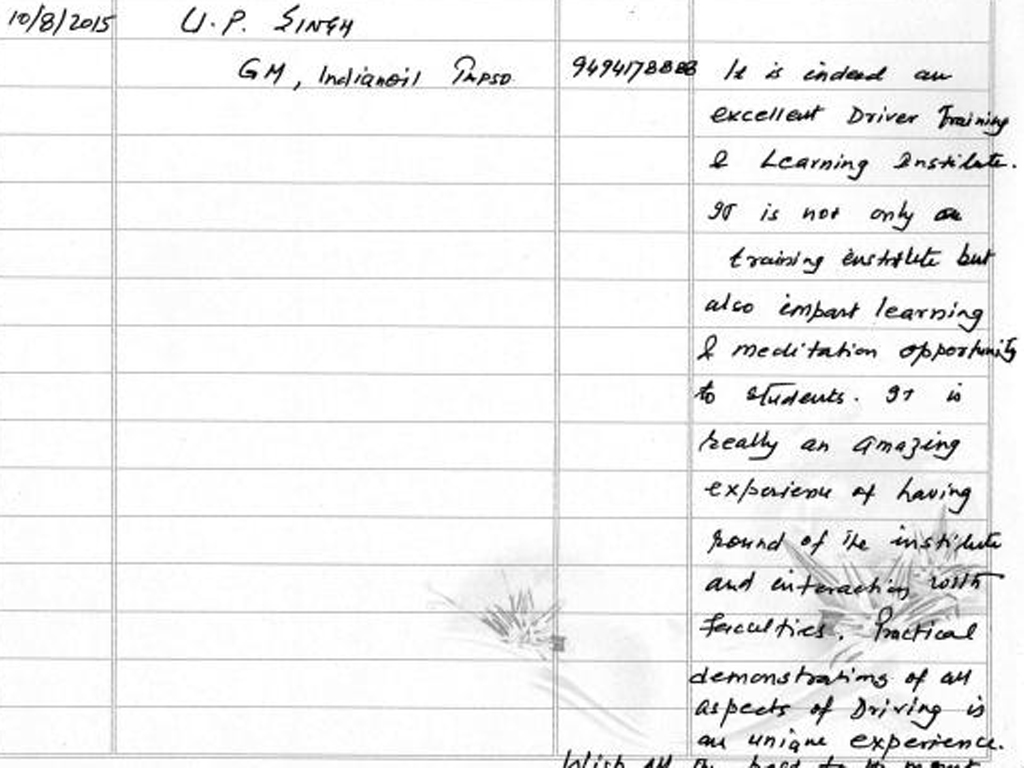 10/8/2015 U. P. SINGH
GM, Indianoil TAPSO 9494178888 It is indeed an
excellent Driver Training
& Learning Institute.
It is not only an
training institute but
also impart learning
& meditation opportunity
to students. It is
really an amazing
experience of having
round of the institute
and interaction with
faculties. Practical
demonstrations of all
aspects of Driving is
an unique experience.
Wish all the best to